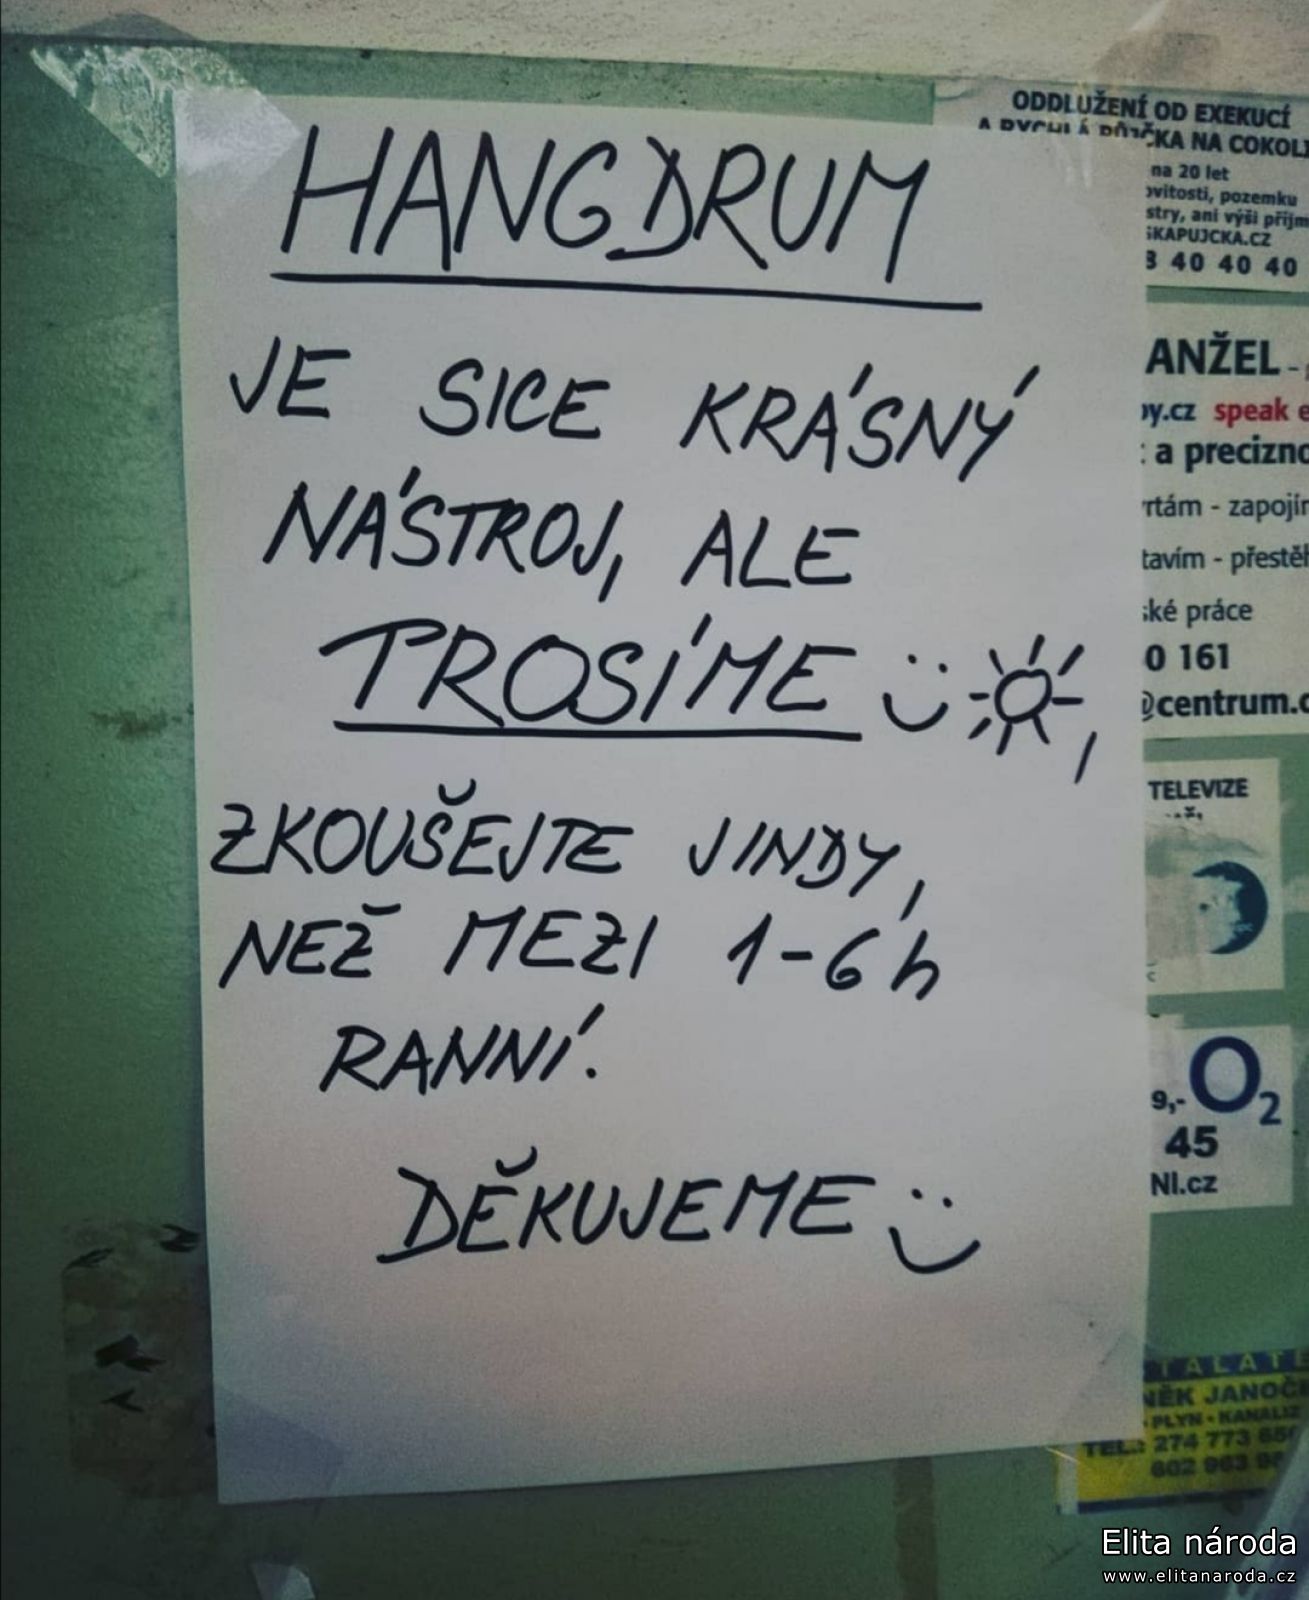 HANGDRUM
JE SICE KRÁSNÝ
NÁSTROJ, ALE
PROSÍME ,
ZKOUŠEJTE JINDY,
NEŽ MEZI 1-6 h
RANNÍ.
DĚKUJEME
ODDLUŽENÍ OD EXEKUCÍ
A RYCHLÁ PŮJČKA NA COKOLI
na 20 let
ovitosti, pozemku
stry, ani výši příjm
SKAPUJCKA.CZ
8 40 40 40
ANŽEL -
by.cz speak e
a precizno
rtám - zapojím
tavím - přestěh
ské práce
0 161
@centrum.c
TELEVIZE
9,- O2
45
NI.cz
TALATE
NĚK JANOČ
PLYN - KANALIZ
TEL.: 274 773 65
602 963 9
Elita národa
www.elitanaroda.cz